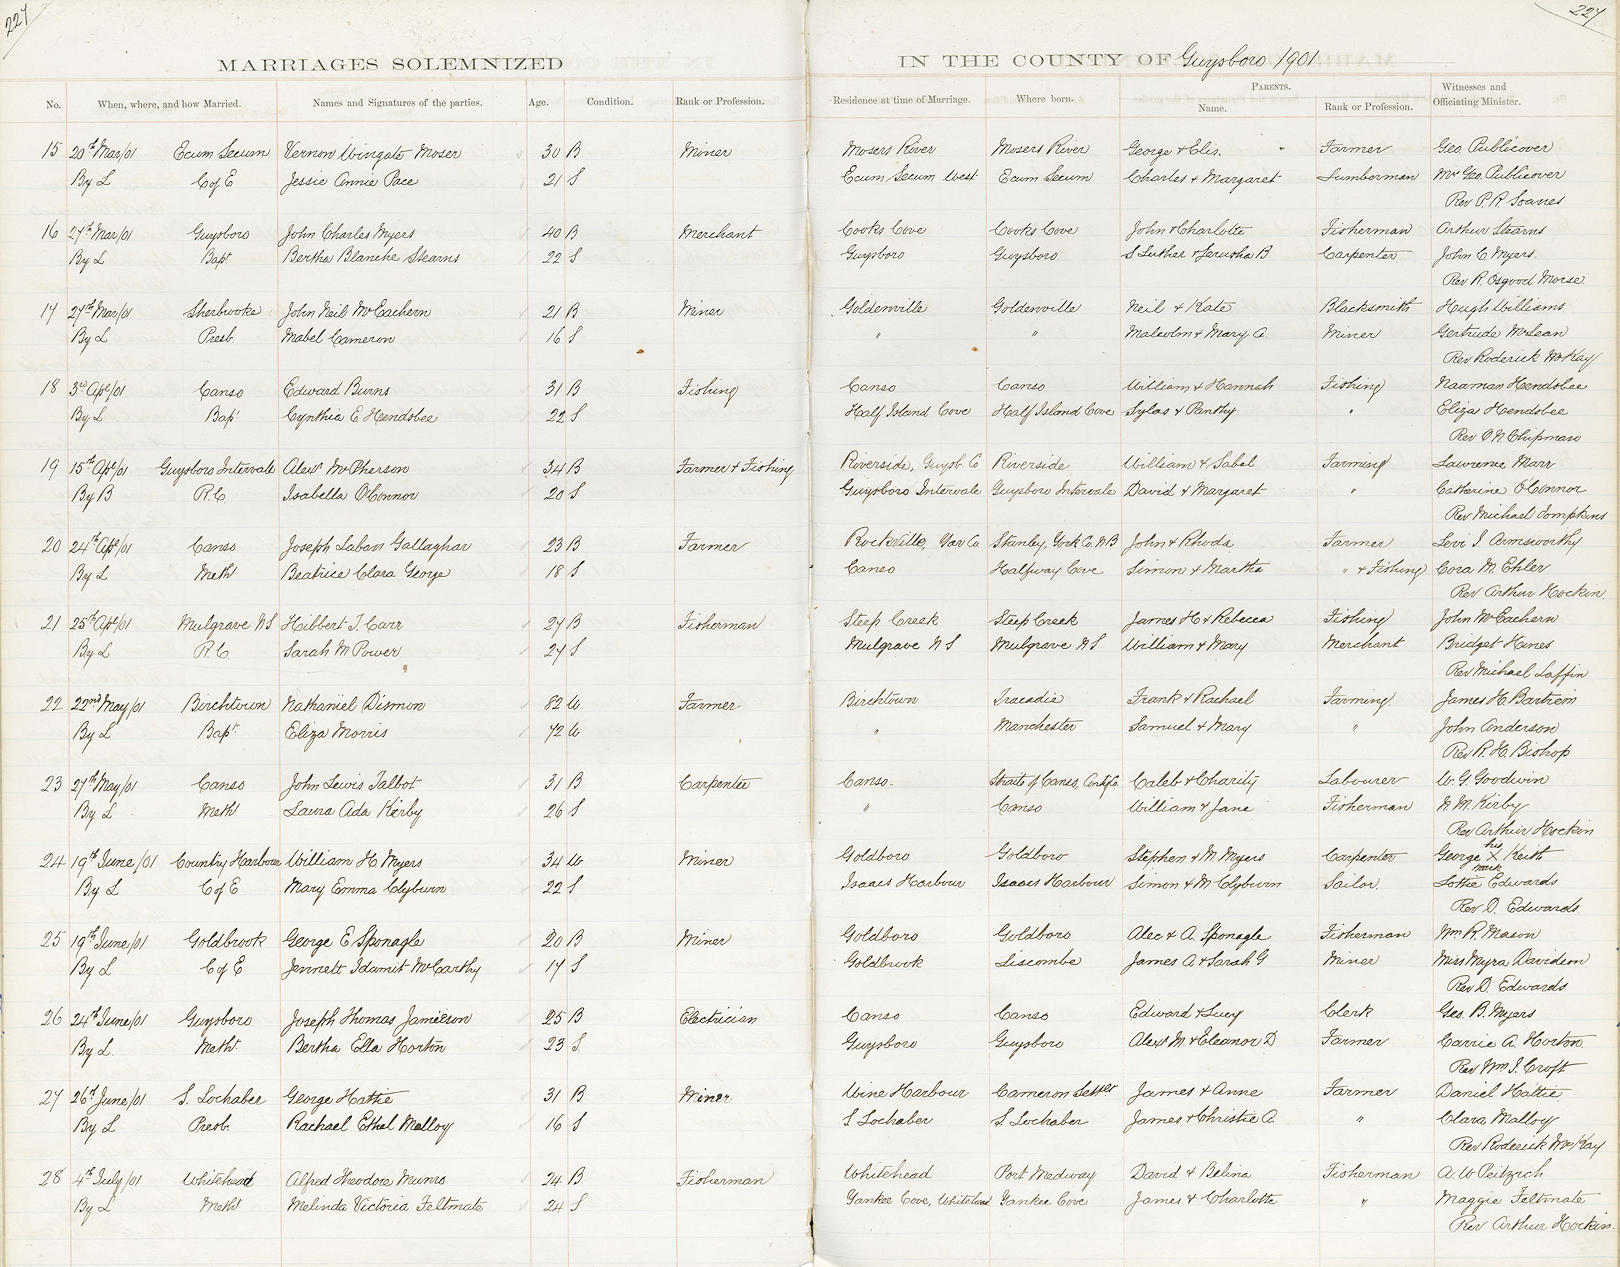 227 227
MARRIAGES SOLEMNIZED IN THE COUNTY OF Guysboro 1901
No. When, where, and how Married. Names and Signatures of the parties. Age. Condition. Rank or Profession. Residence at time of Marriage. Where born. PARENTS. Name. Rank or Profession. Witnesses and Officiating Minister.
15 20th Mar/01 Ecum Secum Vernon Wingate Moser 30 B Miner Mosers River Mosers River George & Elis. " Farmer Geo. Publicover
By L C of E Jessie Annie Pace 21 S Ecum Secum West Ecum Secum Charles & Margaret Lumberman Mrs Geo. Publicover
Rev P R Soanes
16 27th Mar/01 Guysboro John Charles Myers 40 B Merchant Cooks Cove Cooks Cove John & Charlotte Fisherman Arthur Stearns
By L Bapt Bertha Blanche Stearns 22 S Guysboro Guysboro S Luther & Jerusha B Carpenter John C Myers.
Rev R. Osgood Morse
17 27th Mar/01 Sherbrooke John Neil McEachern 21 B Miner Goldenville Goldenville Neil & Kate Blacksmith Hugh Williams
By L Presb. Mabel Cameron 16 S " " Malcolm & Mary A. Miner Gertrude McLean
Rev Roderick McKay
18 3rd Apl/01 Canso Edward Burns 31 B Fishing Canso Canso William & Hannah Fishing Naaman Hendsbee
By L Bapt Cynthia E Hendsbee 22 S Half Island Cove Half Island Cove Sylas & Panthy " Eliza Hendsbee
Rev O N Chipman
19 15th Apl/01 Guysboro Intervale Alexr McPherson 34 B Farmer & Fishing Riverside, Guysb. Co Riverside William & Isabel Farming Lawrence Marr
By B R.C Isabella O'Connor 20 S Guysboro Intervale Guysboro Intervale David & Margaret " Catherine O'Connor
Rev Michael Tompkins
20 24th Apl/01 Canso Joseph Laban Gallaghar 23 B Farmer Rockville, Yar Co. Stanley, York Co. N B John & Rhoda Farmer Levi J. Armsworthy
By L Meth Beatrice Clara George 18 S Canso Halfway Cove Simon & Martha " & Fishing Cora M. Ehler
Rev Arthur Hockin.
21 25th Apl/01 Mulgrave N S Hibbert T. Carr 27 B Fisherman Steep Creek Steep Creek James H & Rebecca Fishing John McEachern
By L R.C. Sarah M Power 27 S Mulgrave N S Mulgrave N S William & Mary Merchant Bridget Hines
Rev Michael Laffin
22 22nd May/01 Birchtown Nathaniel Dismon 82 W Farmer Birchtown Tracadie Frank & Rachael Farming James H. Bartrim
By L Bapt. Eliza Morris 72 W " Manchester Samuel & Mary " John Anderson
Rev R. H. Bishop
23 27th May/01 Canso John Lewis Talbot 31 B Carpenter Canso. Straits of Canso, Antg Co. Caleb & Charity Labourer W. G. Goodwin
By L Meth Laura Ada Kirby 26 S " Canso William & Jane Fisherman N. M. Kirby
Rev Arthur Hockin
24 19th June/01 Country Harbour William H Myers 34 W Miner Goldboro Goldboro Stephen & M Myers Carpenter George his X mark Keith
By L C of E Mary Emma Clyburn 22 S Isaacs Harbour Isaacs Harbour Simon & M Clyburn Sailor. Lottie Edwards
Rev D. Edwards
25 19th June/01 Goldbrook George E Sponagle 20 B Miner Goldboro Goldboro Alec & A. Sponagle Fisherman Wm R. Mason
By L C of E Jennett Idamit McCarthy 17 S Goldbrook Liscombe James A. & Sarah G Miner Miss Myra Davidson
Rev D. Edwards
26 24th June/01 Guysboro Joseph Thomas Jamieson 25 B Electrician Canso Canso Edward & Lucy Clerk Geo. B. Myers
By L. Meth Bertha Ella Horton 23 S. Guysboro Guysboro Alexr M. & Eleanor D Farmer Carrie A. Horton
Rev Wm J. Croft
27 26th June/01 S. Lochaber George Hattie 31 B Miner Wine Harbour Cameron Settlet James & Anne Farmer Daniel Hattie
By L Presb. Rachael Ethel Malloy 16 S S Lochaber S. Lochaber James & Christie A. " Clara Malloy
Rev Roderick McKay
28 4th July/01 Whitehead Alfred Theodore Munro 24 B Fisherman Whitehead Port Medway David & Belina Fisherman A. W Peitzsch
By L Meth Melinda Victoria Feltmate 24 S Yankee Cove, Whitehead Yankee Cove James & Charlotte " Maggie Feltmate
Rev Arthur Hockin.